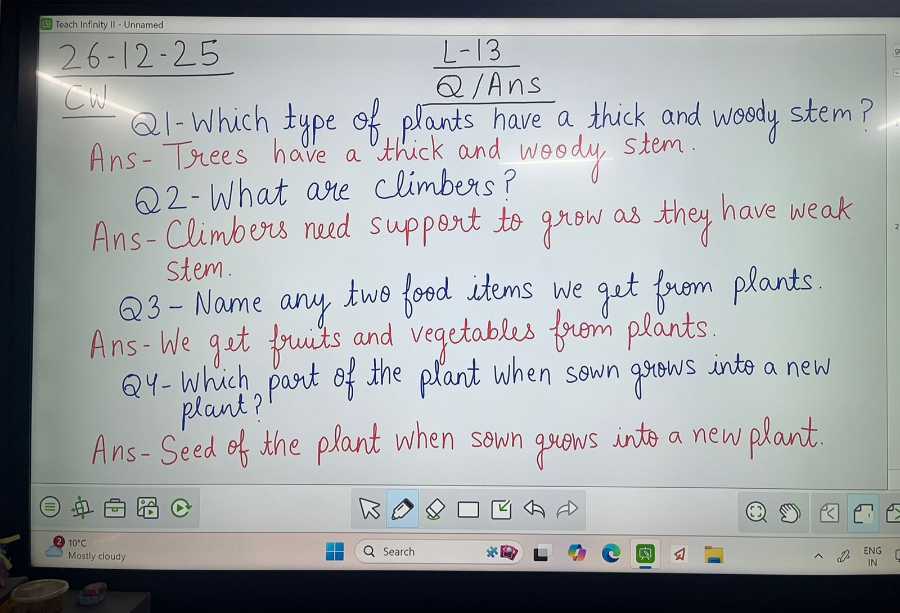 Teach Infinity II - Unnamed
26-12-25
L-13
CW
Q/Ans
Q1-Which type of plants have a thick and woody stem?
Ans- Trees have a thick and woody stem.
Q2-What are climbers?
Ans- Climbers need support to grow as they have weak
stem.
Q3- Name any two food items we get from plants.
Ans- We get fruits and vegetables from plants.
Q4- Which part of the plant when sown grows into a new
plant?
Ans- Seed of the plant when sown grows into a new plant.
2
10°C
Mostly cloudy
Search
ENG
IN